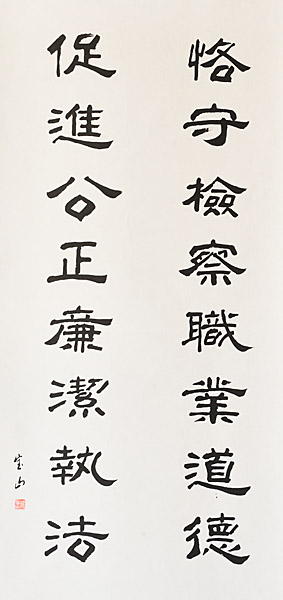 恪守檢察職業道德
促進公正廉潔執法
宝山